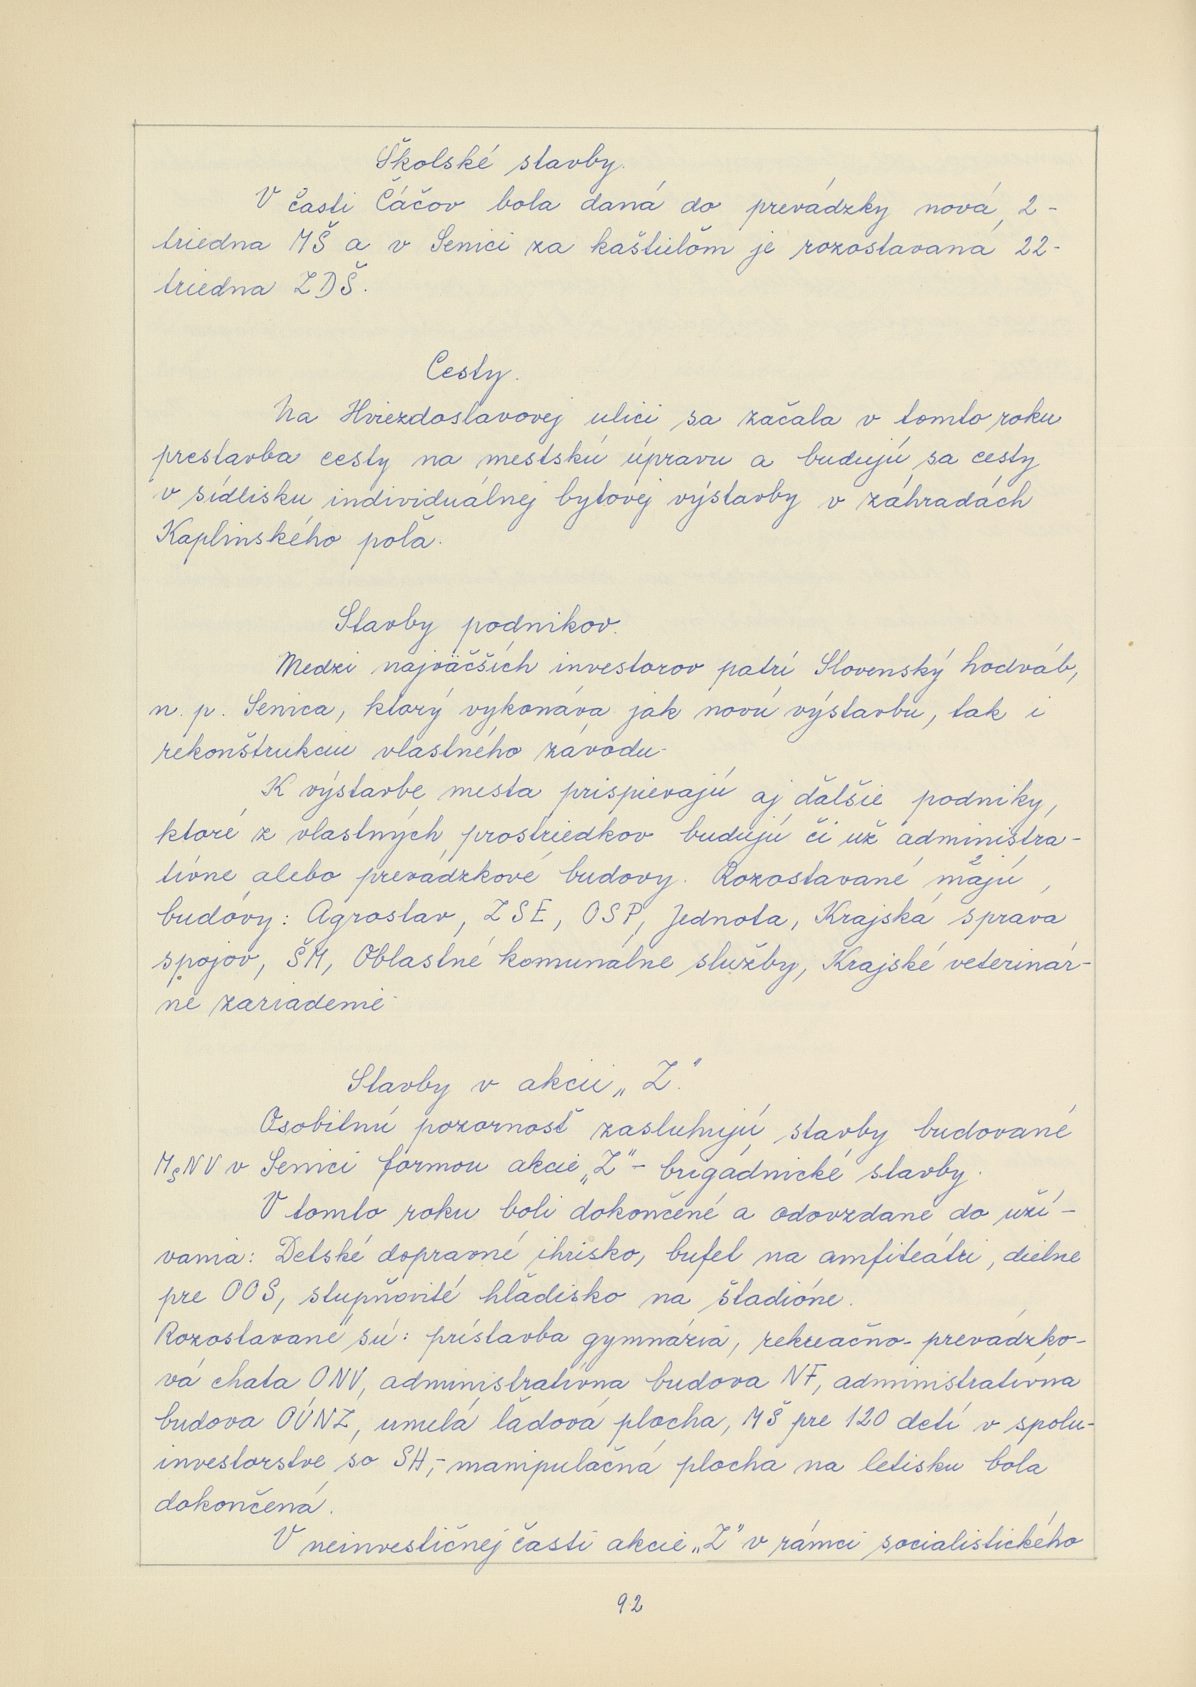 Školské stavby.
V časti Čáčov bola daná do prevádzky nová 2-
triedna MŠ a v Senici za kaštieľom je rozostavaná 22-
triedna ZDŠ.
Cesty.
Na Hviezdoslavovej ulici sa začala v tomto roku
prestavba cesty na mestskú úpravu a budujú sa cesty
v sídlisku individuálnej bytovej výstavby v záhradách
Kaplinského poľa.
Stavby podnikov.
Medzi najväčších investorov patrí Slovenský hodváb,
n. p. Senica, ktorý vykonáva jak novú výstavbu, tak i
rekonštrukciu vlastného závodu.
K výstavbe mesta prispievajú aj ďalšie podniky,
ktoré z vlastných prostriedkov budujú či už administra-
tívne alebo prevádzkové budovy. Rozostavané majú
budovy: Agrostav, ZSE, OSP, Jednota, Krajská správa
spojov, ŠM, Oblastné komunálne služby, Krajské veterinár-
ne zariadenie.
Stavby v akcii „Z".
Osobitnú pozornosť zasluhujú stavby budované
MsNV v Senici formou akcie „Z" - brigádnické stavby.
V tomto roku boli dokončené a odovzdané do uží-
vania: Detské dopravné ihrisko, bufet na amfiteátri, dielne
pre OOS, stupňovité hľadisko na štadióne.
Rozostavané sú: prístavba gymnázia, rekreačno-prevádzko-
vá chata ONV, administratívna budova NF, administratívna
budova OÚNZ, umelá ľadová plocha, MŠ pre 120 detí v spolu-
investorstve so SH,- manipulačná plocha na letisku bola
dokončená.
V neinvestičnej časti akcie „Z" v rámci socialistického
92